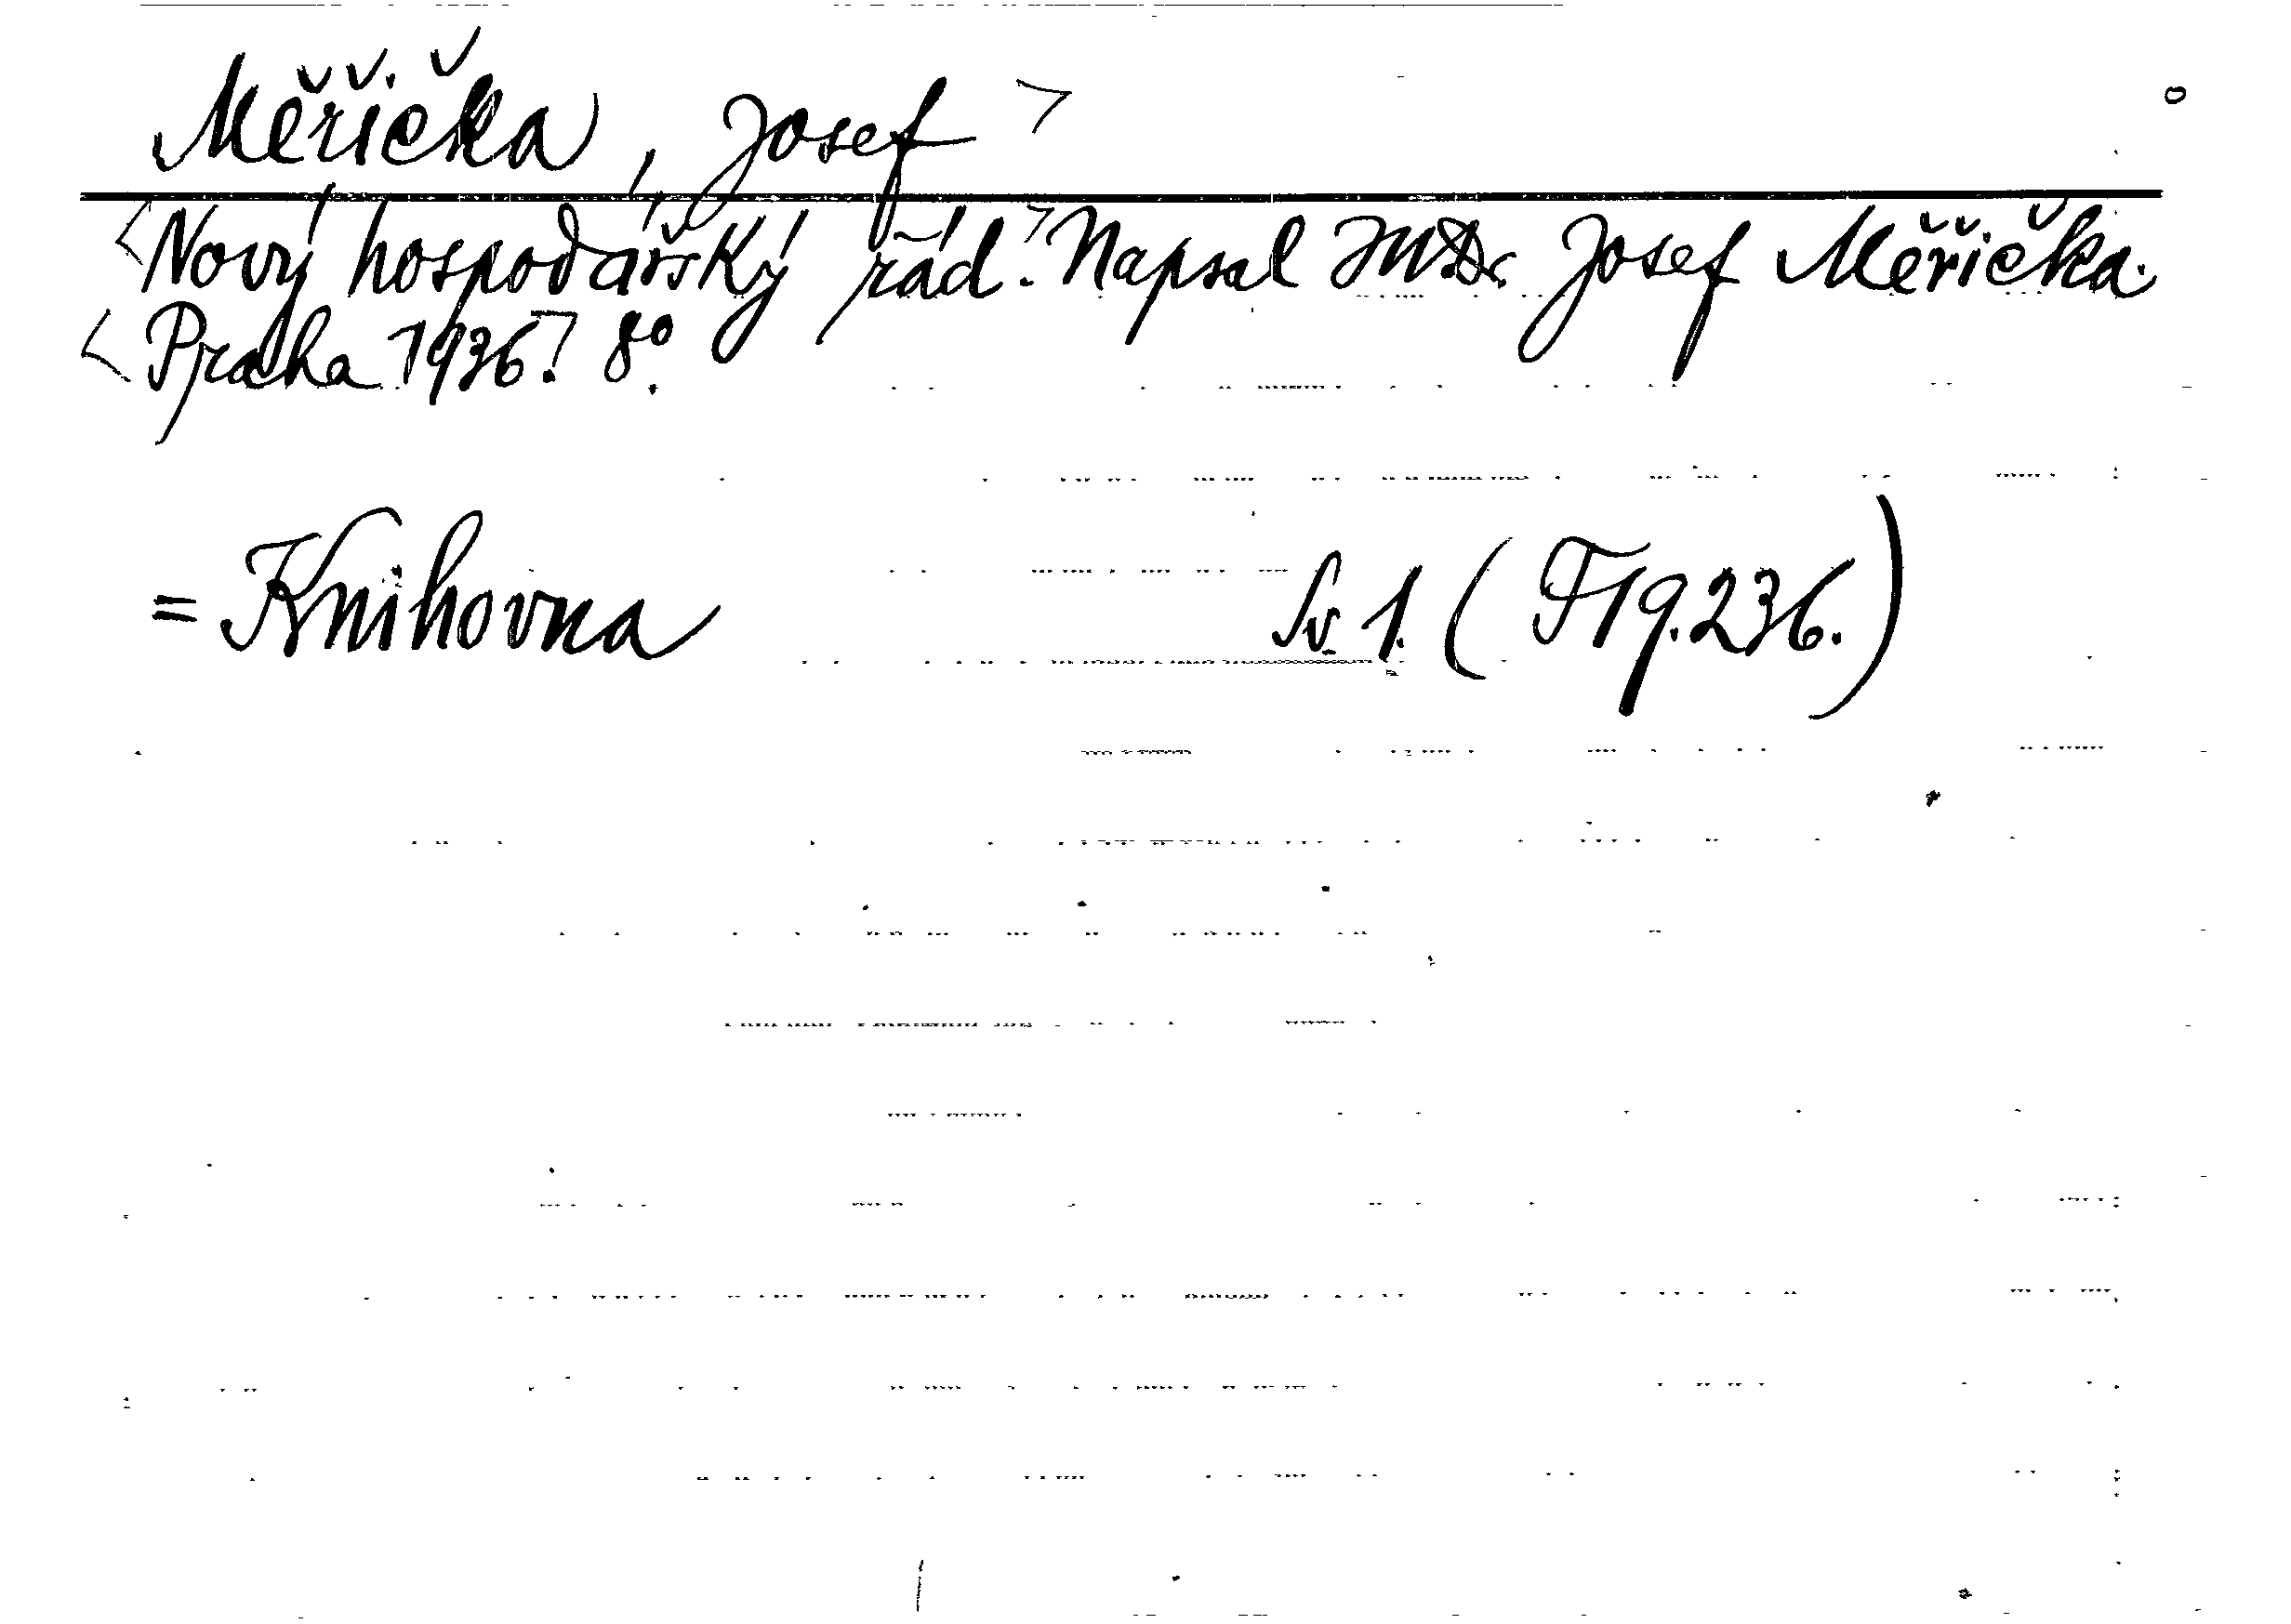 Měřička, Josef >
<Nový hospodářský řád.> Napsal JUDr Josef Měřička.
<Praha 1936.> 8°.
= Knihovna Sv. 1. (F19.236.)